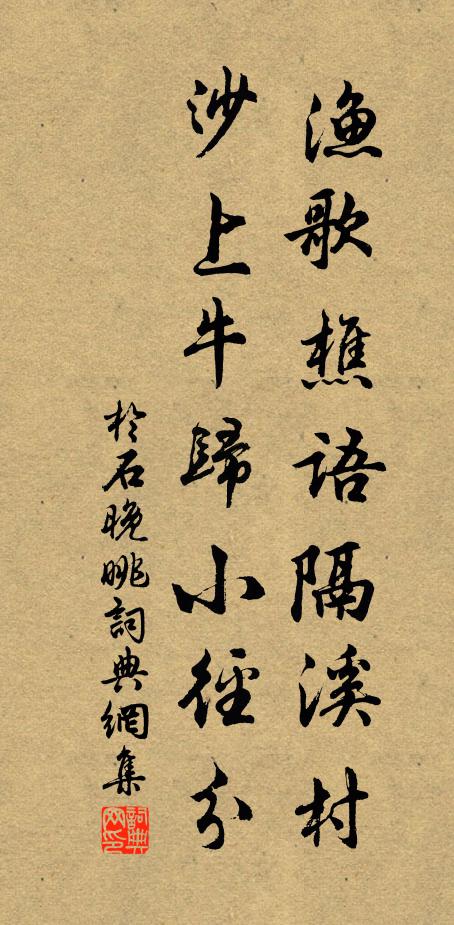 漁歌樵語隔溪村
沙上牛歸小徑分
於石晚眺詞典網集
詞典网印